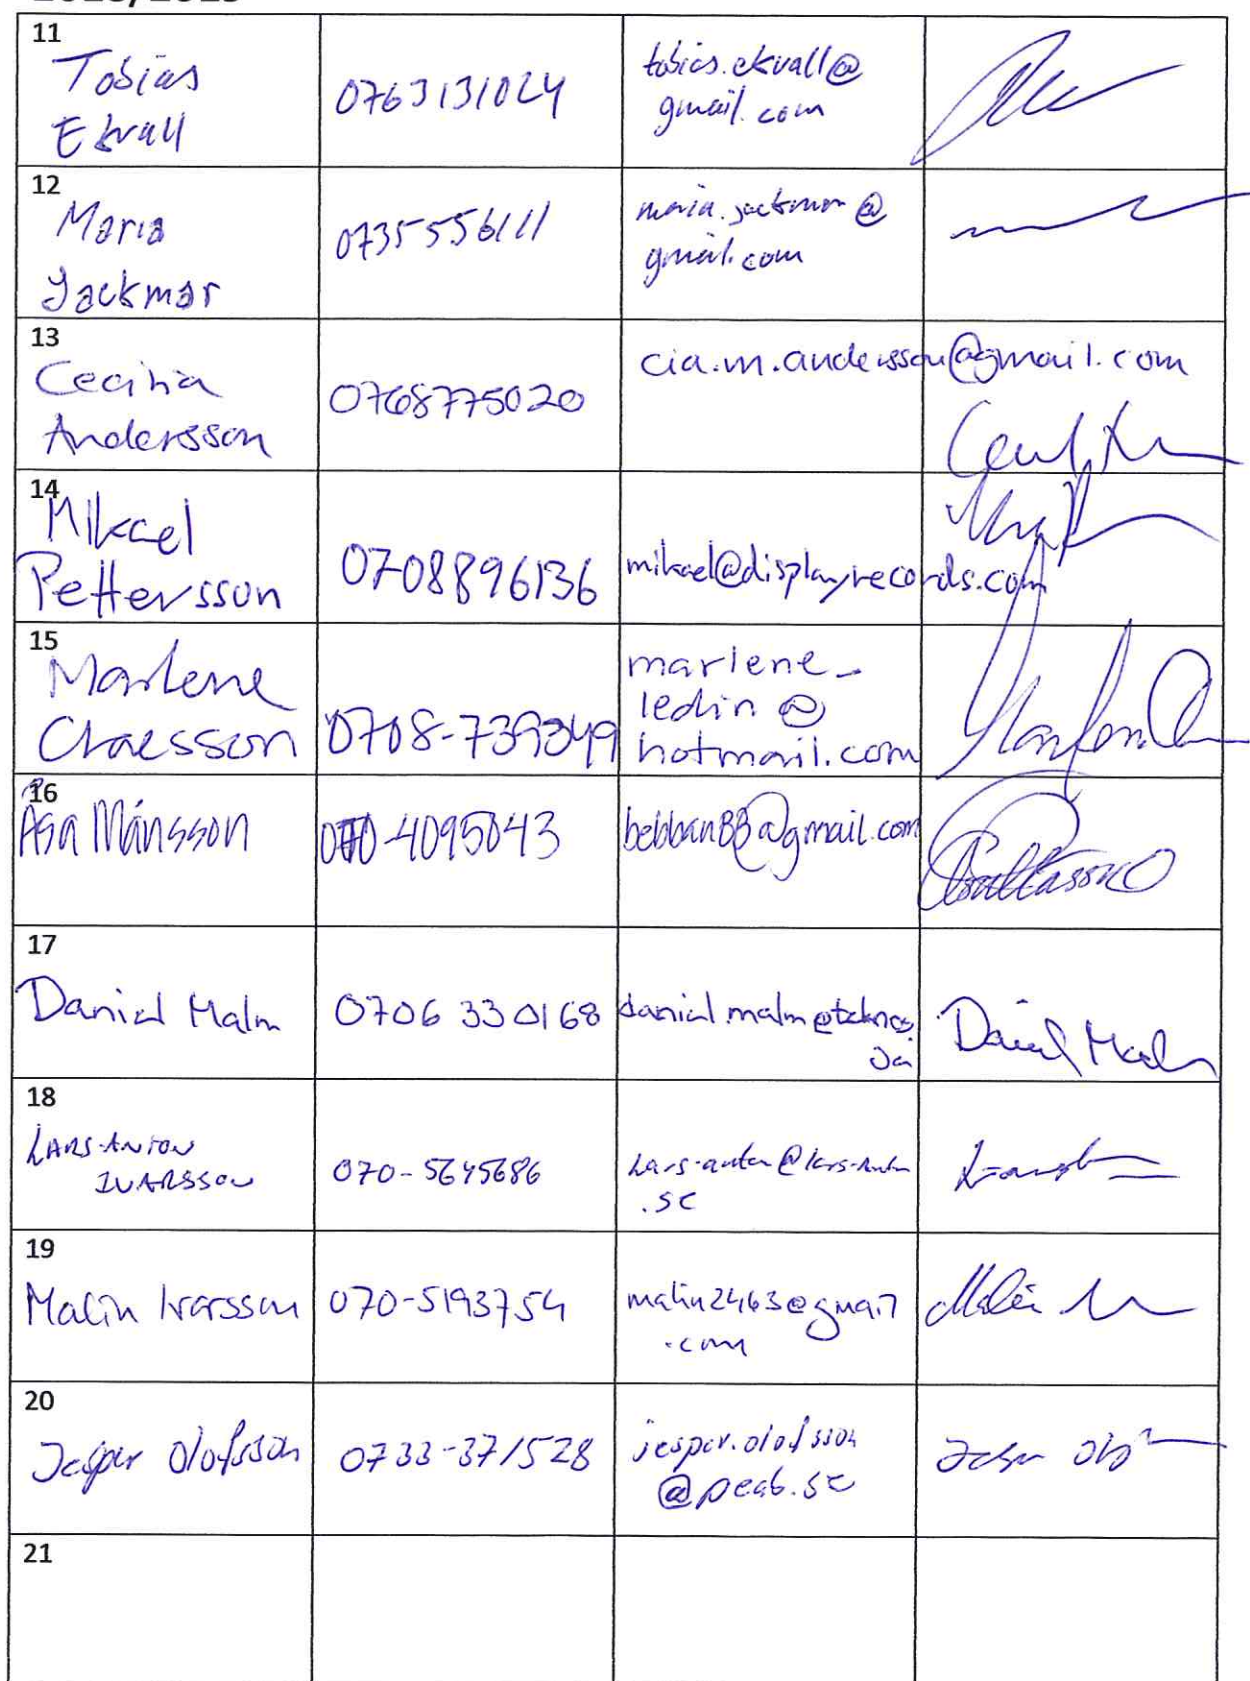 11
Tobias
Ekvall
0763131024
tobias.ekvall@
gmail.com
12
Maria
Jackmar
0735556111
maria.jackmar@
gmail.com
13
Cecilia
Andersson
0768775020
cia.m.andersson@gmail.com
14
Mikael
Pettersson
0708896136
mikael@displayrecords.com
15
Marlene
Claesson
0708-739349
marlene_
ledin@
hotmail.com
16
Åsa Månsson
070-4095043
bebban88@gmail.com
17
Daniel Malm
0706 330168
daniel.malm@
18
LARS-ANTON
IVARSSON
070-5645686
Lars-anton@lars-anton
.se
19
Malin Ivarsson
070-5193754
malin2463@gmail
.com
20
Jesper Olofsson
0733-371528
jesper.olofsson
@peab.se
21